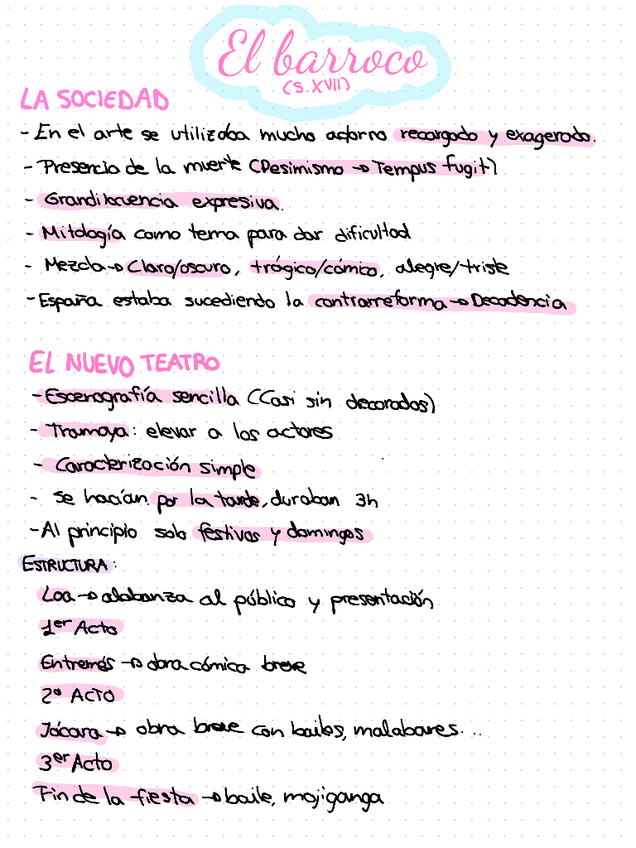 El barroco
(S. XVII)
LA SOCIEDAD
- En el arte se utilizaba mucho adorno recargado y exagerado.
- Presencia de la muerte (Pesimismo → Tempus fugit)
- Grandilocuencia expresiva.
- Mitología como tema para dar dificultad
- Mezcla → Claro/oscuro, trágico/cómico, alegre/triste
- España estaba sucediendo la contrarreforma → Decadencia
EL NUEVO TEATRO
- Escenografía sencilla (Casi sin decorados)
- Tramoya: elevar a los actores
- Caracterización simple
- Se hacían por la tarde, duraban 3h
- Al principio solo festivos y domingos
ESTRUCTURA:
Loa → alabanza al público y presentación
1er Acto
Entremés → obra cómica breve
2º ACTO
Jácara → obra breve con bailes, malabares...
3er Acto
Fin de la fiesta → baile, mojiganga